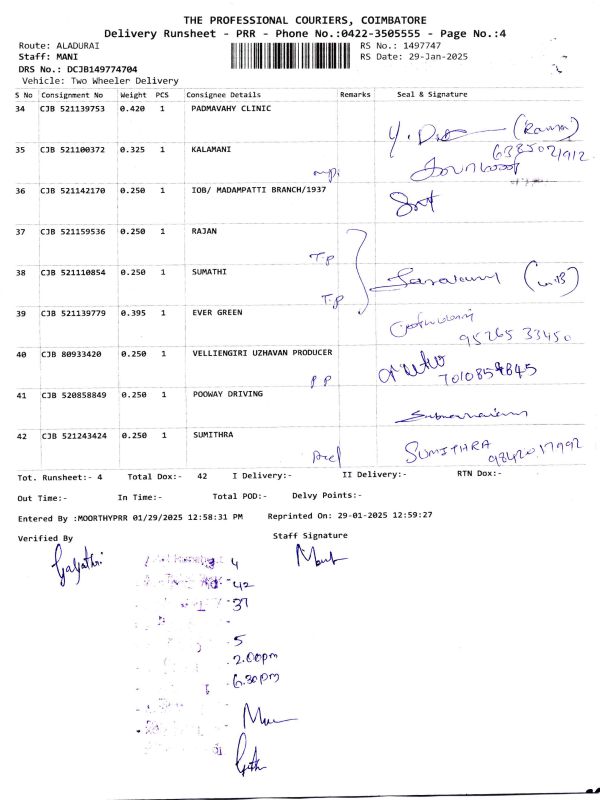 THE PROFESSIONAL COURIERS, COIMBATORE
Delivery Runsheet - PRR - Phone No.:0422-3505555 - Page No.:4
Route: ALADURAI RS No.: 1497747
Staff: MANI RS Date: 29-Jan-2025
DRS No.: DCJB149774704
Vehicle: Two Wheeler Delivery
S No Consignment No Weight PCS Consignee Details Remarks Seal & Signature
34 CJB 521139753 0.420 1 PADMAVAHY CLINIC
35 CJB 521100372 0.325 1 KALAMANI
36 CJB 521142170 0.250 1 IOB/ MADAMPATTI BRANCH/1937
37 CJB 521159536 0.250 1 RAJAN
T.P
38 CJB 521110854 0.250 1 SUMATHI
T.P
39 CJB 521139779 0.395 1 EVER GREEN
95265 33450
40 CJB 80933420 0.250 1 VELLIENGIRI UZHAVAN PRODUCER
PP
41 CJB 520858849 0.250 1 POOWAY DRIVING
42 CJB 521243424 0.250 1 SUMITHRA
SUMITHRA
9842017992
Tot. Runsheet:- 4 Total Dox:- 42 I Delivery:- II Delivery:- RTN Dox:-
Out Time:- In Time:- Total POD:- Delvy Points:-
Entered By :MOORTHYPRR 01/29/2025 12:58:31 PM Reprinted On: 29-01-2025 12:59:27
Verified By Staff Signature
Gayathri
4
42
37
-
5
2.00pm
6.30pm